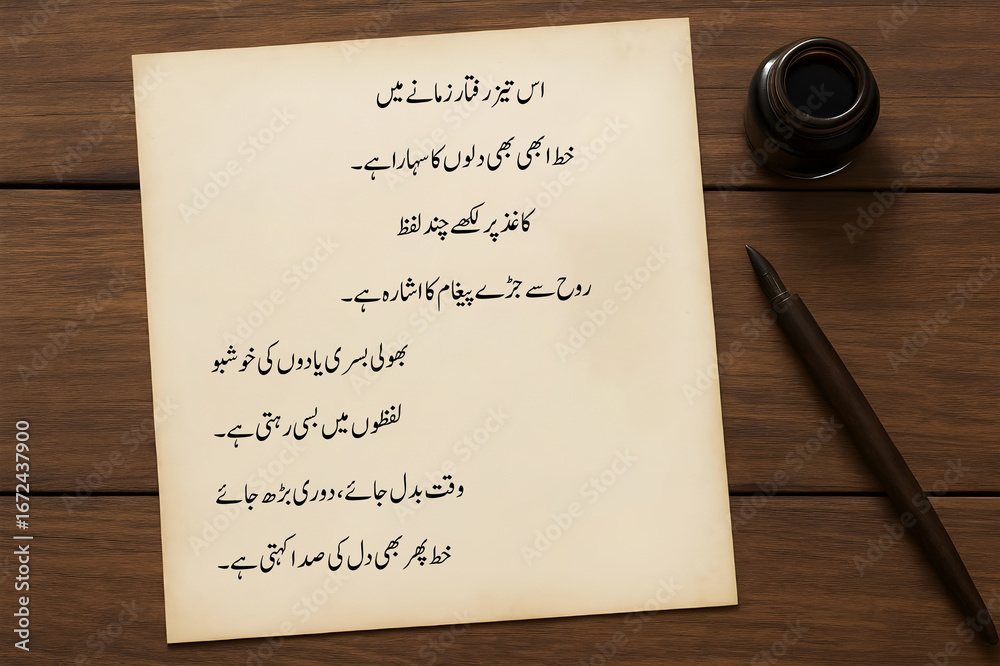 اس تیز رفتار زمانے میں
خط ابھی بھی دلوں کا سہارا ہے۔
کاغذ پر لکھے چند لفظ
روح سے جڑے پیغام کا اشارہ ہے۔
بھولی بسری یادوں کی خوشبو
لفظوں میں بسی رہتی ہے۔
وقت بدل جائے، دوری بڑھ جائے
خط پھر بھی دل کی صدا کہتی ہے۔
Adobe Stock | #1672437900